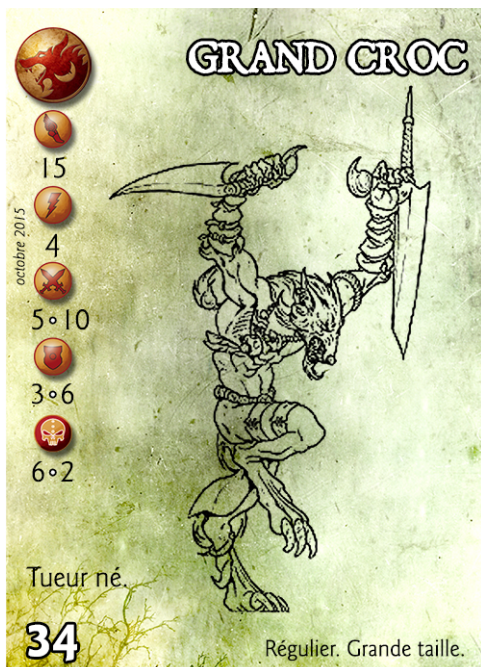 GRAND CROC
15
octobre 2015
4
5•10
3•6
6•2
Tueur né.
34
Régulier. Grande taille.